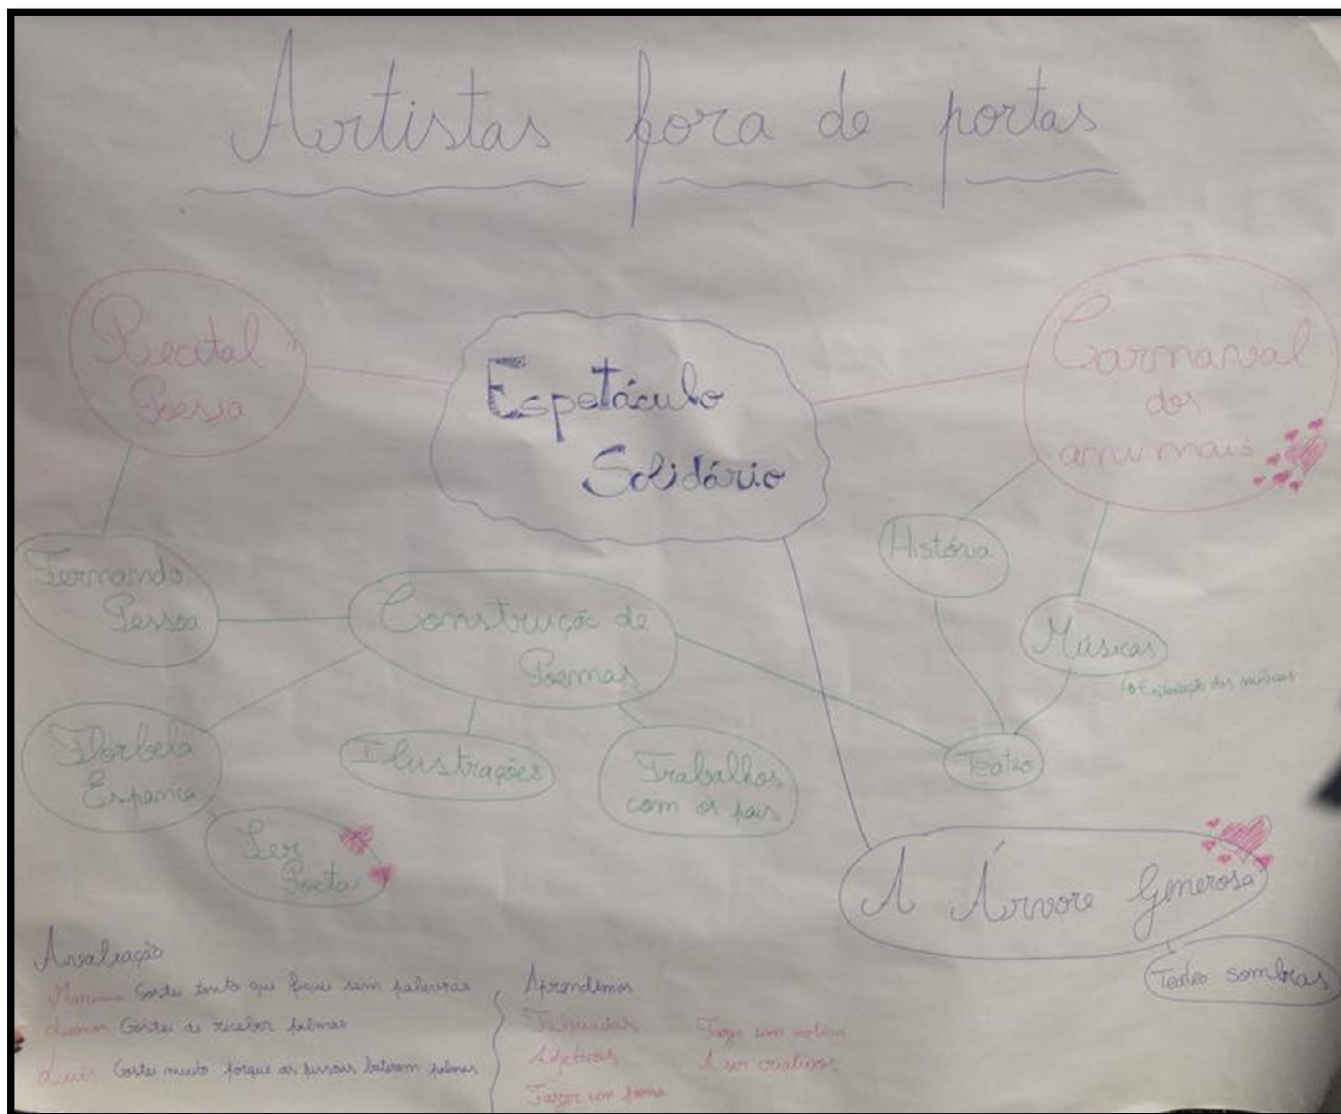 Artistas fora de portas
Recital
Poesia
Espetáculo
Solidário
Carnaval
dos
animais
História
Fernando
Pessoa
Construção de
Poemas
Músicas
↳ Exploração das músicas
Florbela
Espanca
Ilustrações
Trabalhos
com os pais
Teatro
Ser
Poeta
A Árvore Generosa
Teatro sombras
Avaliação
Gostei tanto que fiquei sem palavras
Leonor Gostei de receber palmas
Luís Gostei muito porque as pessoas bateram palmas
Aprendemos
Adjetivos
Fazer um poema
Fazer uma notícia
A ser criativos